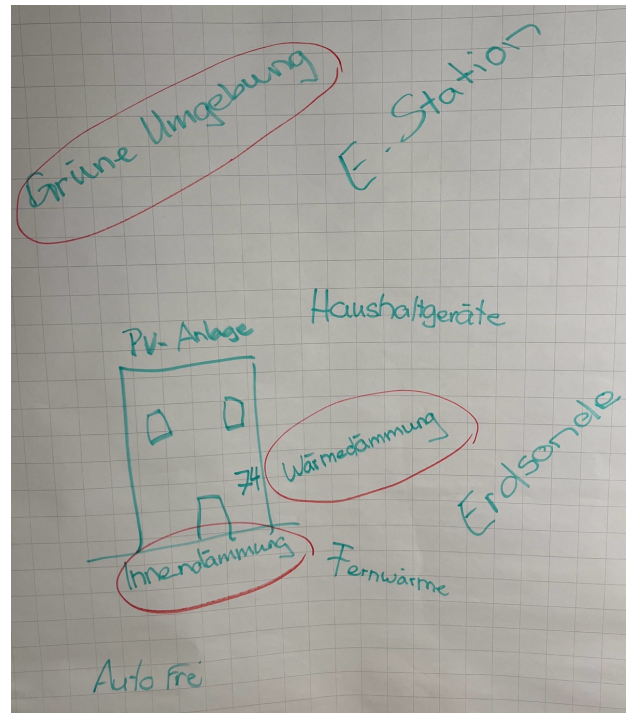 Grüne Umgebung
E. Station
Haushaltgeräte
PV-Anlage
Wärmedämmung
74
Erdsonde
Innendämmung
Fernwärme
Auto Frei